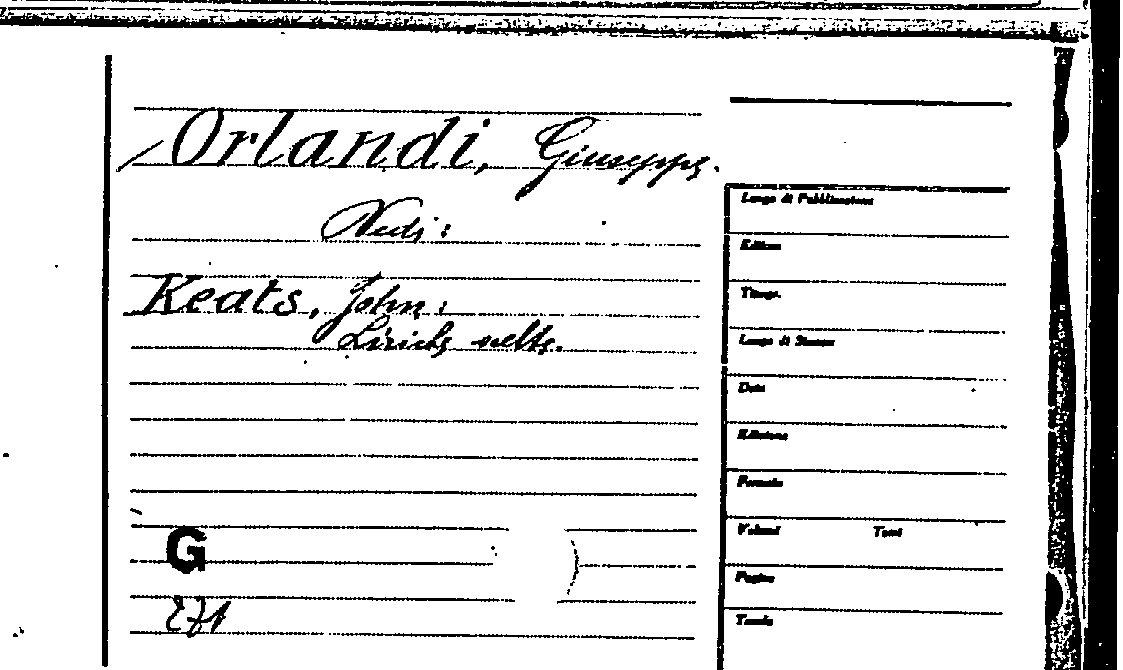 Orlandi, Giuseppe.
Vedi:
Keats, John:
Liriche scelte.
G
Luogo di Pubblicazione
Editore
Tipogr.
Luogo di Stampa
Data
Edizione
Formato
Volumi Tomi
Pagine
Tavole